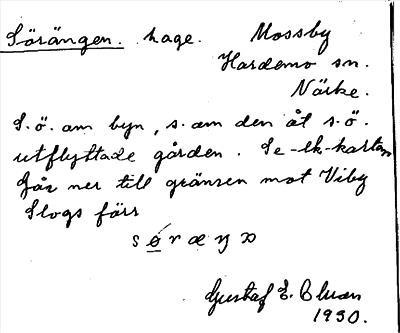 Sörängen. hage. Mossby
Hardemo sn.
Närke.
S.ö. om byn, s. om den åt s.ö.
utflyttade gården. Se -ek-kartan
Går ner till gränsen mot Viby
Slogs förr
søræŋɔ
Gustaf E.
1930.